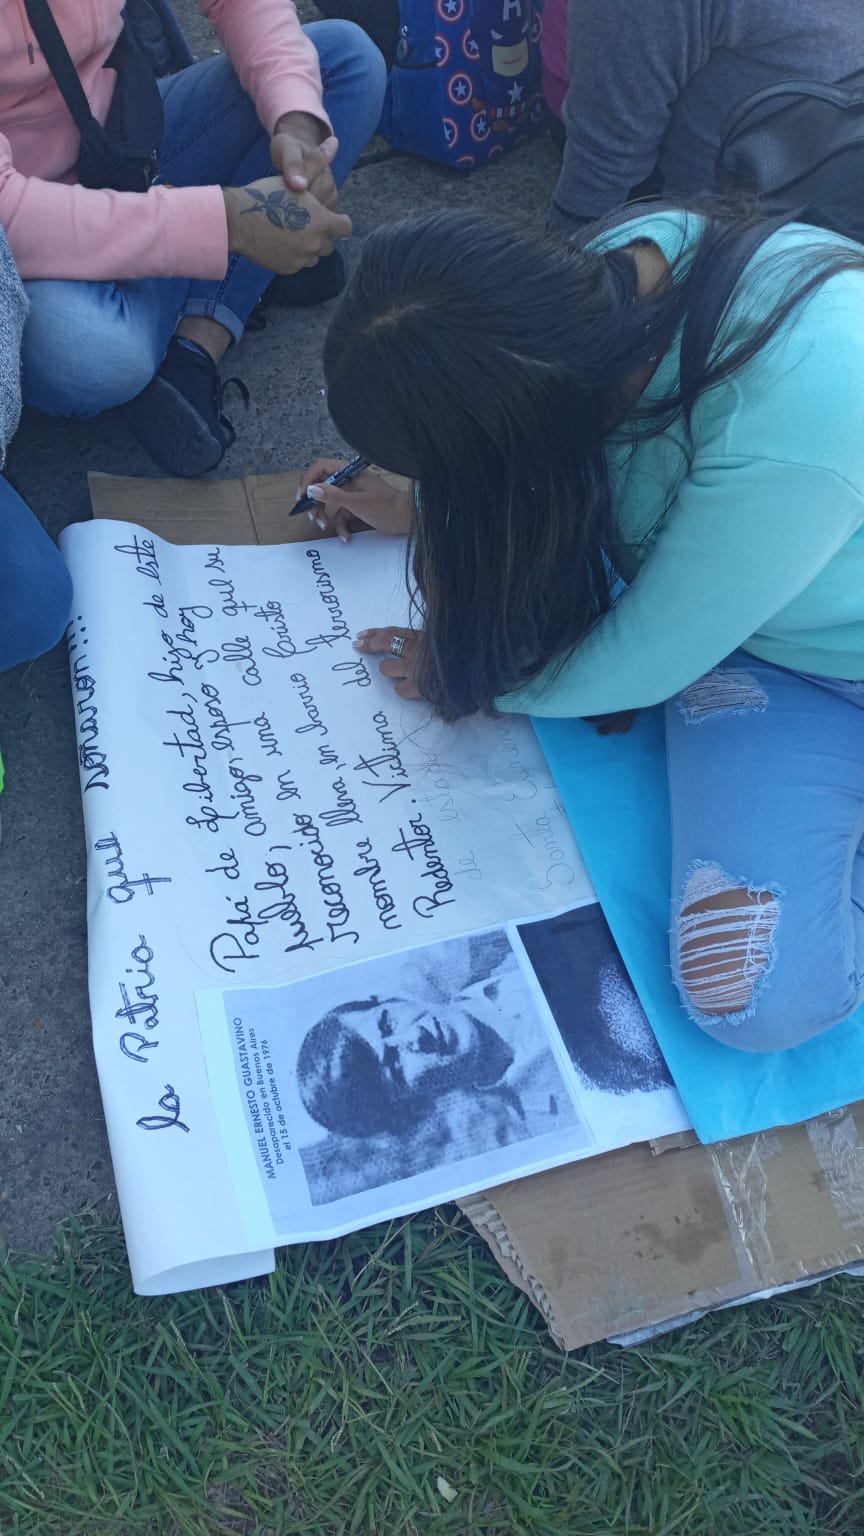 la Patria que soñaron!!!
Papá de Libertad, hijo de este
pueblo, amigo, esposo y hoy
reconocido en una calle que su
nombre lleva, en barrio Cristo
Redentor. Víctima del terrorismo
de estado
Santa
MANUEL ERNESTO GUASTAVINO
Desaparecido en Buenos Aires
el 15 de octubre de 1976
A